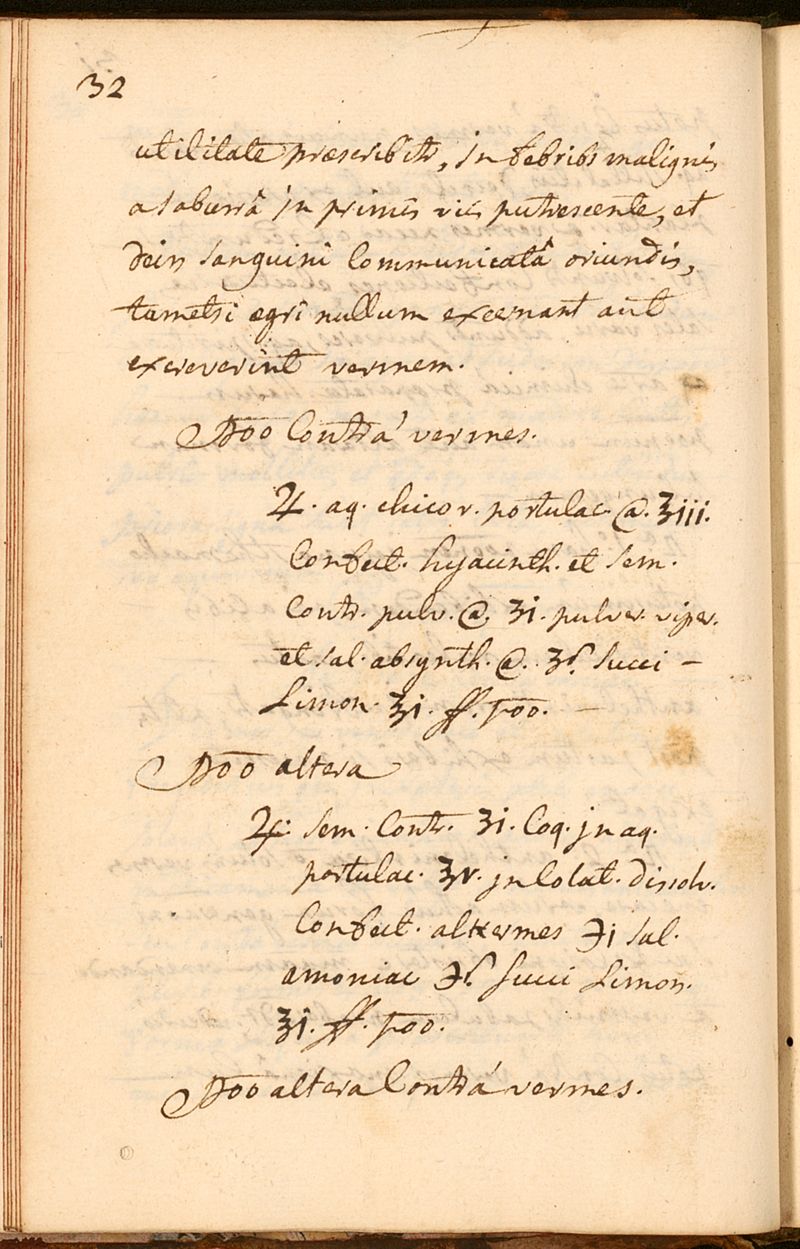 32
utilitate præscribitr, in febribs malignis
a saburrâ in primis viis putrescente, et
dein sanguini Communicatâ oriundis,
tametsi ægri nullum excernant aut
excreverint vermem.
Poo Contrá vermes.
♃. aq. chicor. portulac. @. ℥iii.
Confect. hyacinth. et sem.
Contr. pulv. @. ʒi. pulver. viper.
et sal. absynth. @. ʒß. Succi –
Limon. ℥i. ff. poo. –
Poo altera
♃. sem. Contr. ʒi. Coq. in aq.
portulac. ℥v. in Colat. dissolv.
Confect. alkermes ℈i sal.
amoniac ℈ß. Succi Limon.
℥i. ff. poo.
Poo altera Contrá vermes.